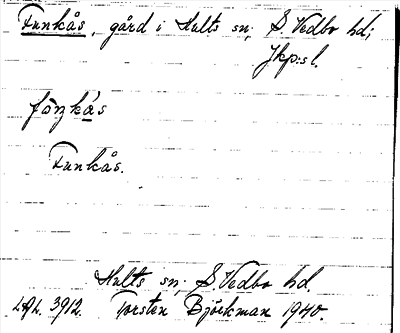 Funkås, gård i Hults sn; S. Vedbo hd;
Jkp:sl.
fȯŋkås
Funkås.
Hults sn; S. Vedbo hd.
LAL. 3912. Torsten Björkman 1940.